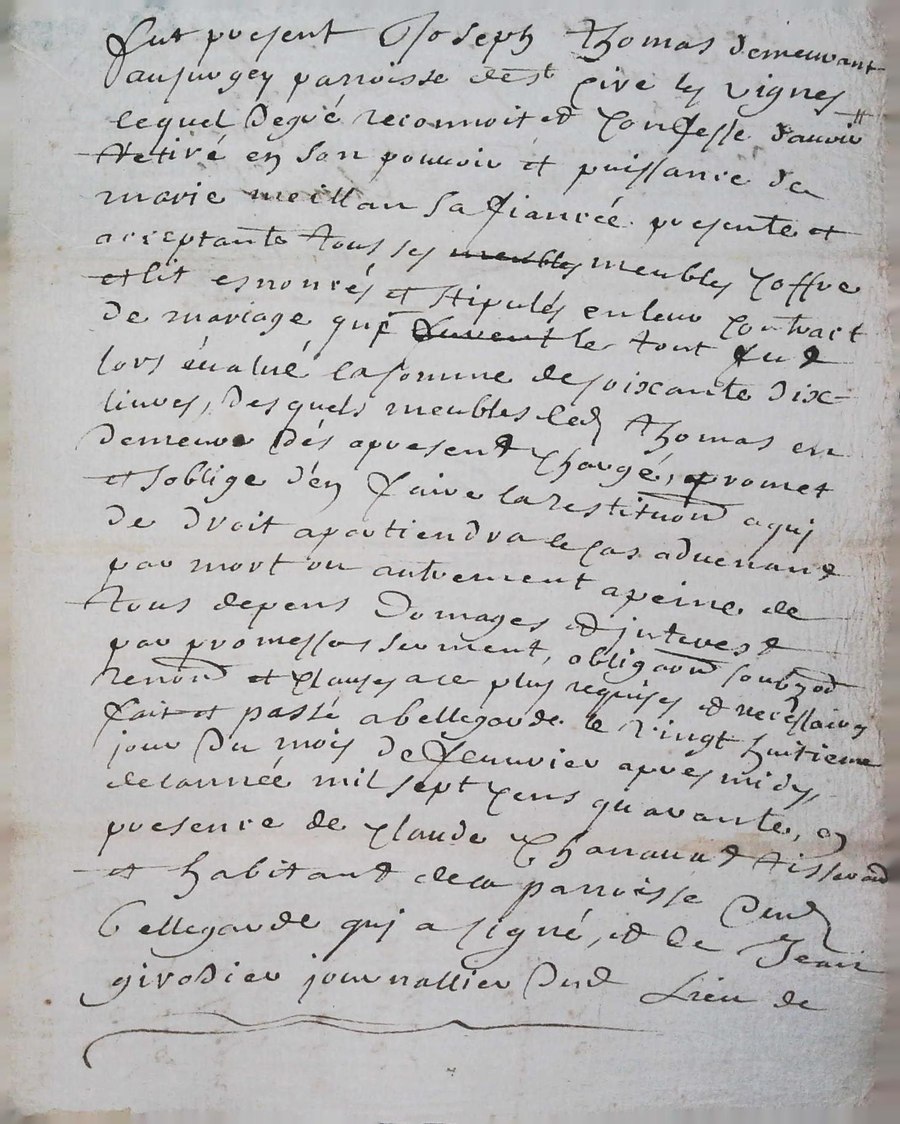 fut present Joseph thomas demeurant
au jurgey parroisse de st Cire les vignes
lequel de gré reconnoit et Confesse d'avoir
Retiré en son pouvoir et puissance de
marie meillan sa fiancée presente et
acceptante tous ses meubles meubles Coffre
et lit esnoncés et stipulés en leur Contract
de mariage qui furent le tout fut
lors évalué la somme de soixante dix
livres, desquels meubles led thomas en
demeure dés apresent Chargé, promet
et soblige d'en faire la restitution a qui
de droit apartiendra le Cas advenant
par mort ou autrement a peine de
tous depens Domages et interest
par promesses serment, obligaon soubzon
renon et Clauses a ce plus requises et necessaires
fait et passé a bellegarde le vingt huitieme
jour du mois de fevrier apres midy,
de lannée mil sept Cens quarante, en
presence de Claude Chanavat tisserand
et habitant de la parroisse dud
Bellegarde qui a signé, et de Jean
girodier journallier dud Lieu de